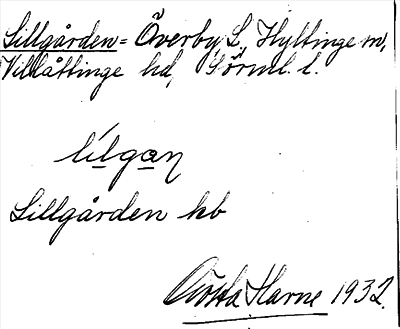 Lillgården = Överby, L., Hyltinge sn,
Villåttinge hd, Sörml. l.
lílgan
Lillgården kb
Gösta Harne 1932.